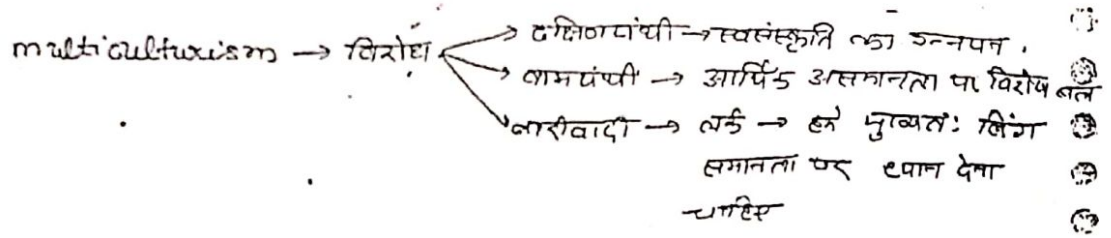 multiculturism → विरोध → दक्षिणपंथी → स्वसंस्कृति का उन्नयन.
→ वामपंथी → आर्थिक असमानता पर विशेष बल
→ नारीवादी → तर्क → हमें मुख्यतः लिंग
समानता पर ध्यान देना
चाहिए